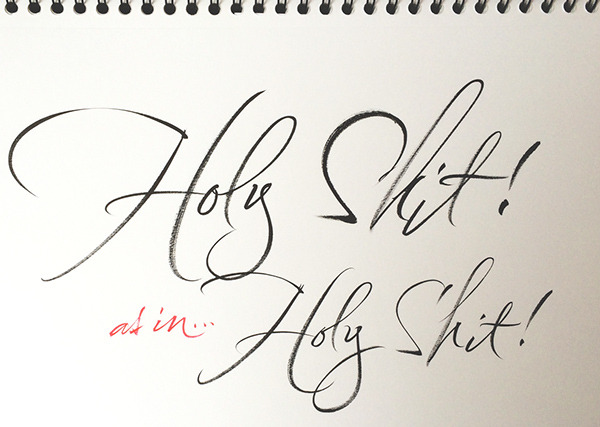 Holy Shit!
as in... Holy Shit!